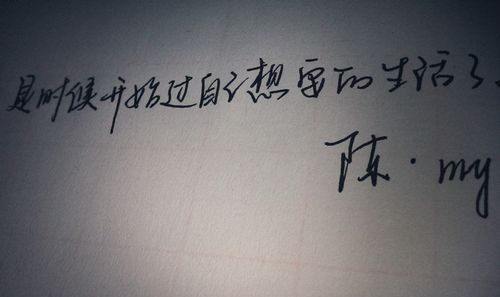 是时候开始过自己想要的生活了.
陈·my